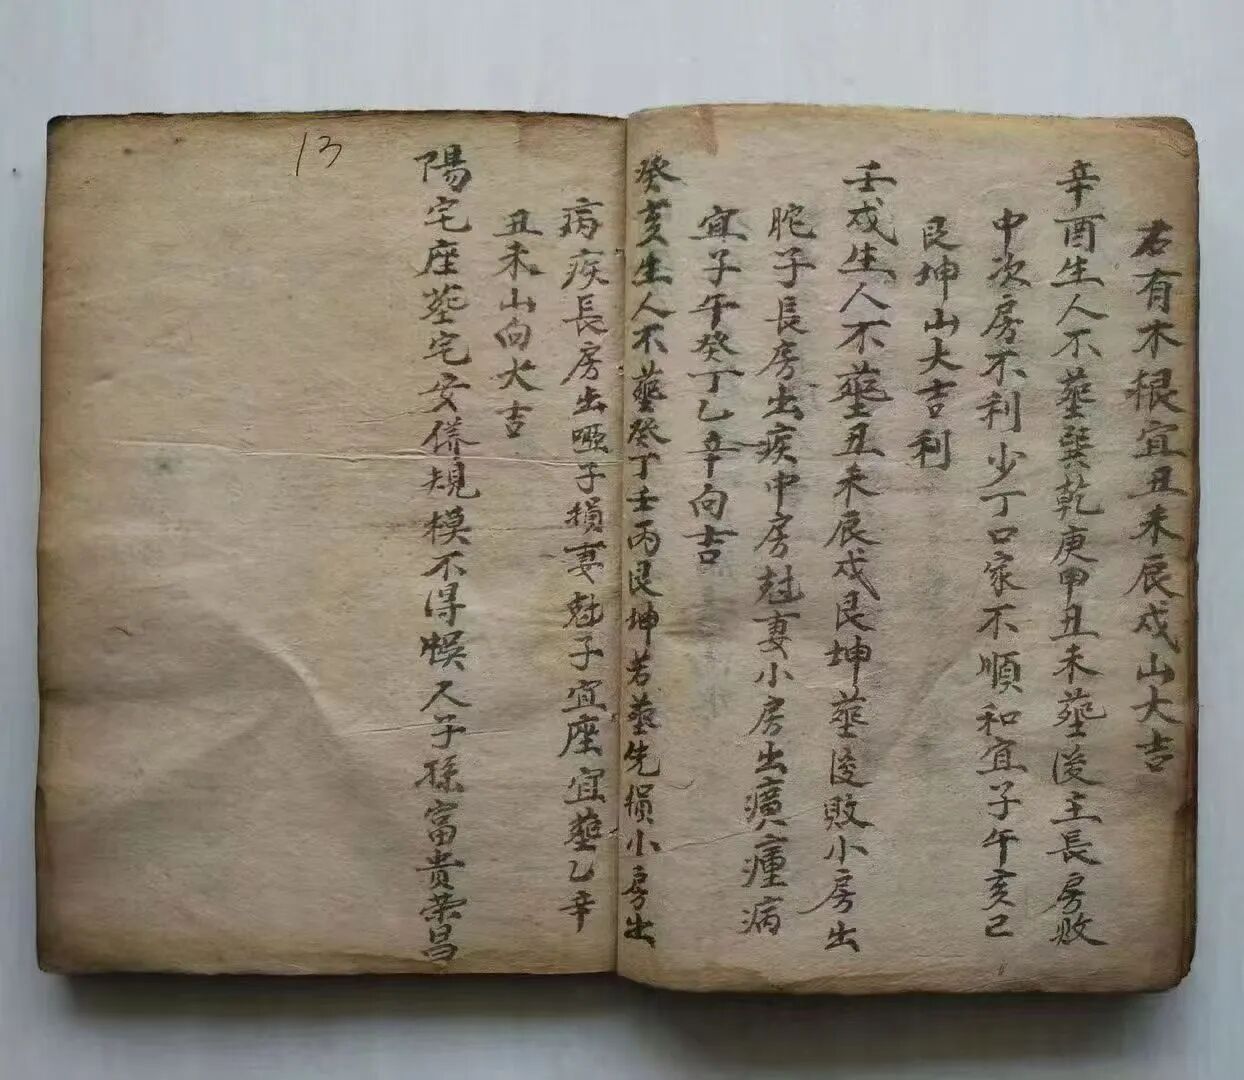 若有不根宜丑未辰戌山大吉
辛酉生人不塟巽乾庚甲丑未塟後主長房敗
中次房不利少丁口家不順和宜子午亥巳
艮坤山大吉利
壬戌生人不塟丑未辰戌艮坤塟後敗小房出
駝子長房出疾中房尅妻小房出癀瘴病
宜子午癸丁乙辛向吉
癸亥生人不塟癸丁壬丙艮坤若塟先損小房出
病疾長房出啞子損妻尅子宜座宜塟乙辛
丑未山向大吉
13
陽宅座塟宅安俢規模不得悮人子孫富貴荣昌